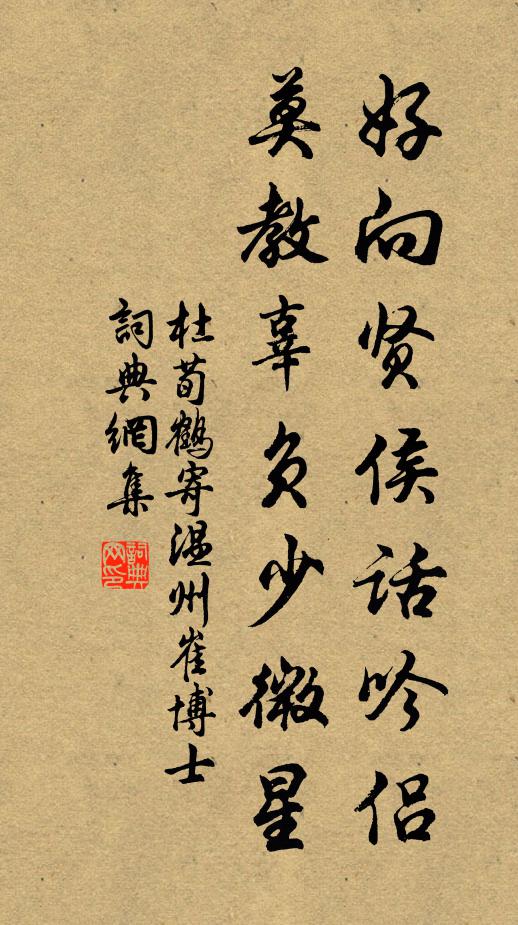 好向贤侯话吟侣
莫教辜负少微星
杜荀鶴寄温州崔博士
詞典網集
詞典
网印